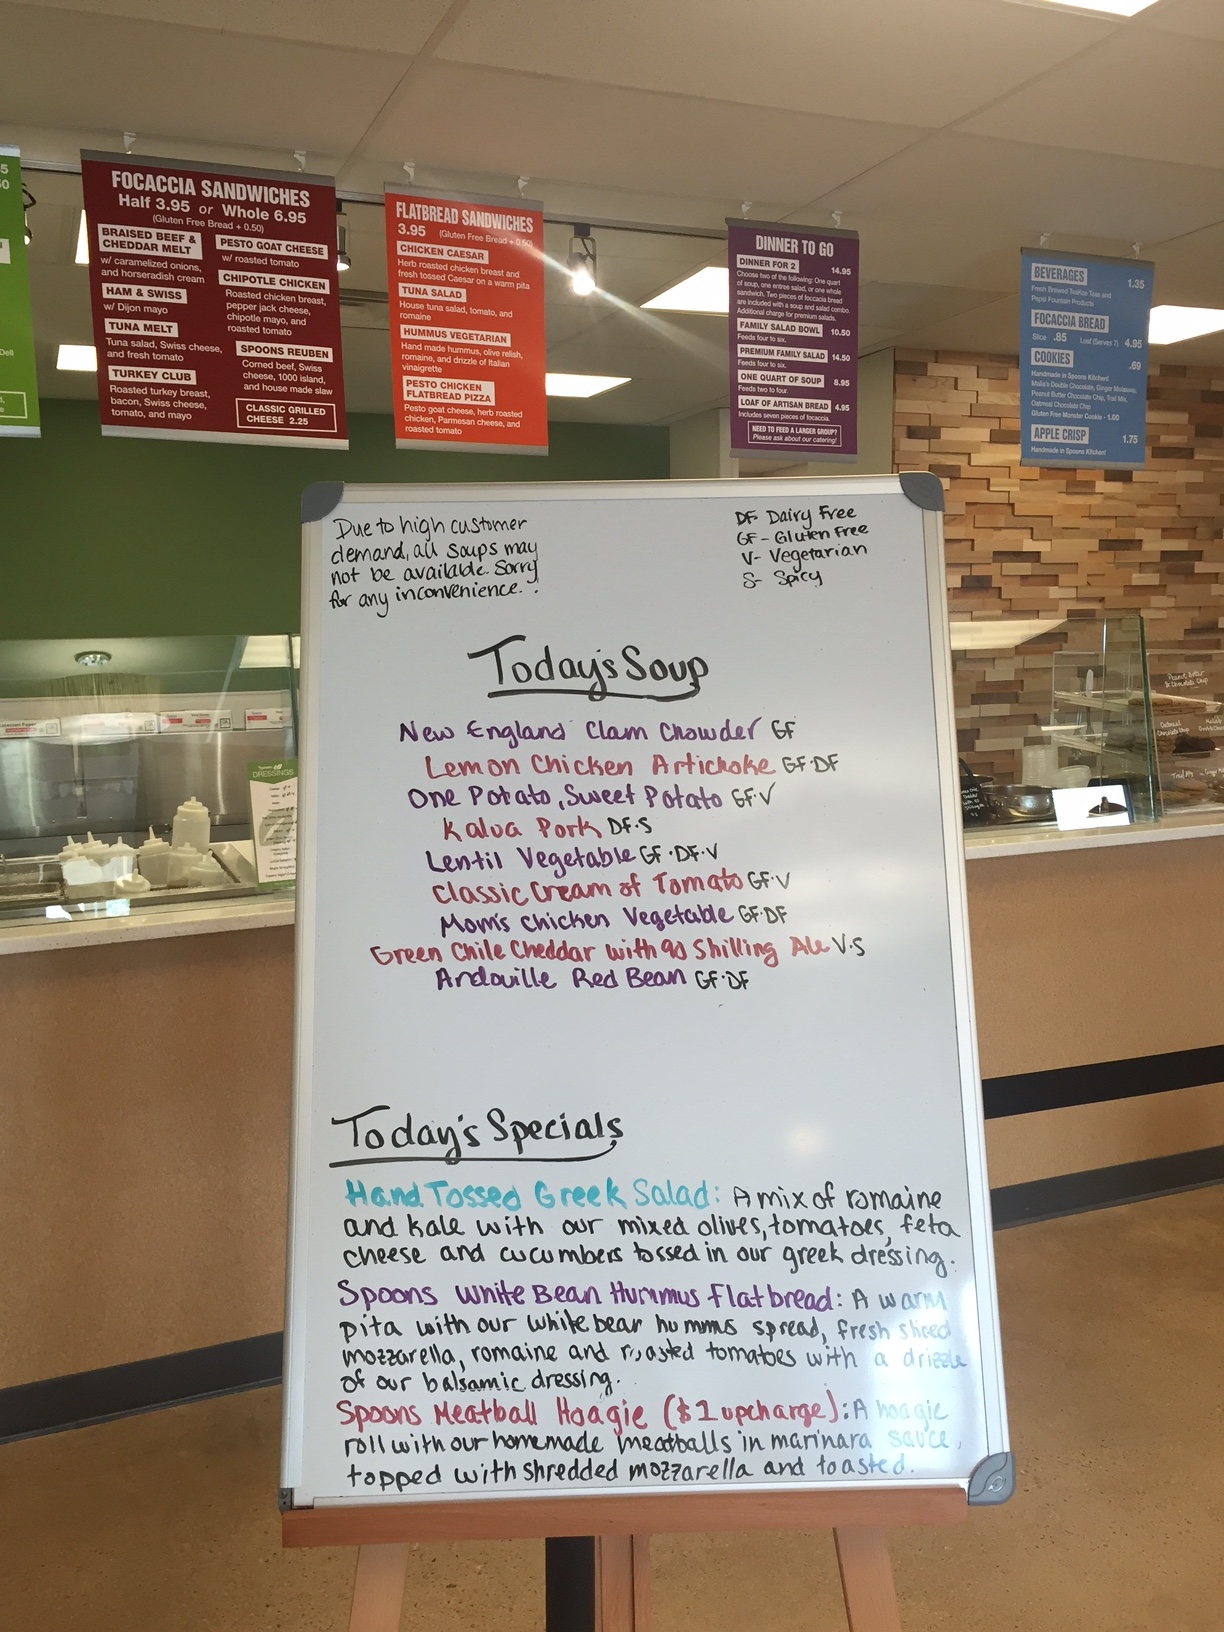 FOCACCIA SANDWICHES
Half 3.95 or Whole 6.95
(Gluten Free Bread + 0.50)
BRAISED BEEF &
CHEDDAR MELT
w/ caramelized onions,
and horseradish cream
HAM & SWISS
w/ Dijon mayo
TUNA MELT
Tuna salad, Swiss cheese,
and fresh tomato
TURKEY CLUB
Roasted turkey breast,
bacon, Swiss cheese,
tomato, and mayo
PESTO GOAT CHEESE
w/ roasted tomato
CHIPOTLE CHICKEN
Roasted chicken breast,
pepper jack cheese,
chipotle mayo, and
roasted tomato
SPOONS REUBEN
Corned beef, Swiss
cheese, 1000 island,
and house made slaw
CLASSIC GRILLED
CHEESE 2.25
FLATBREAD SANDWICHES
3.95 (Gluten Free Bread + 0.50)
CHICKEN CAESAR
Herb roasted chicken breast and
fresh tossed Caesar on a warm pita
TUNA SALAD
House tuna salad, tomato, and
romaine
HUMMUS VEGETARIAN
Hand made hummus, olive relish,
romaine, and drizzle of Italian
vinaigrette
PESTO CHICKEN
FLATBREAD PIZZA
Pesto goat cheese, herb roasted
chicken, Parmesan cheese, and
roasted tomato
DINNER TO GO
DINNER FOR 2 14.95
Choose two of the following: One quart
of soup, one entree salad, or one whole
sandwich. Two pieces of focaccia bread
are included with a soup and salad combo.
Additional charge for premium salads.
FAMILY SALAD BOWL 10.50
Feeds four to six.
PREMIUM FAMILY SALAD 14.50
Feeds four to six.
ONE QUART OF SOUP 8.95
Feeds two to four
LOAF OF ARTISAN BREAD 4.95
Includes seven pieces of focaccia.
NEED TO FEED A LARGER GROUP?
Please ask about our catering!
BEVERAGES 1.35
Fresh Brewed Teas and
Pepsi Fountain Products
FOCACCIA BREAD
Slice .85 Loaf (Serves 7) 4.95
COOKIES .69
Handmade in Spoons Kitchen!
Malia's Double Chocolate, Ginger Molasses,
Peanut Butter Chocolate Chip, Trail Mix,
Oatmeal Chocolate Chip
Gluten Free Monster Cookie - 1.00
APPLE CRISP 1.75
Handmade in Spoons Kitchen!
Due to high customer
demand, all soups may
not be available. Sorry
for any inconvenience. .
DF- Dairy Free
GF- Gluten Free
V- Vegetarian
S- Spicy
Today's Soup
New England Clam Chowder GF
Lemon Chicken Artichoke GF·DF
One Potato, Sweet Potato GF·V
Kalua Pork DF·S
Lentil Vegetable GF·DF·V
Classic Cream of Tomato GF·V
Mom's Chicken Vegetable GF·DF
Green Chile Cheddar with 90 Shilling Ale V·S
Andouille Red Bean GF·DF
DRESSINGS
Today's Specials
Hand Tossed Greek Salad: A mix of romaine
and kale with our mixed olives, tomatoes, feta
cheese and cucumbers tossed in our greek dressing.
Spoons White Bean Hummus Flatbread: A warm
pita with our white bean humms spread, fresh sliced
mozzarella, romaine and roasted tomatoes with a drizzle
of our balsamic dressing.
Spoons Meatball Hoagie ($1 upcharge): A hoagie
roll with our homemade meatballs in marinara sauce,
topped with shredded mozzarella and toasted.